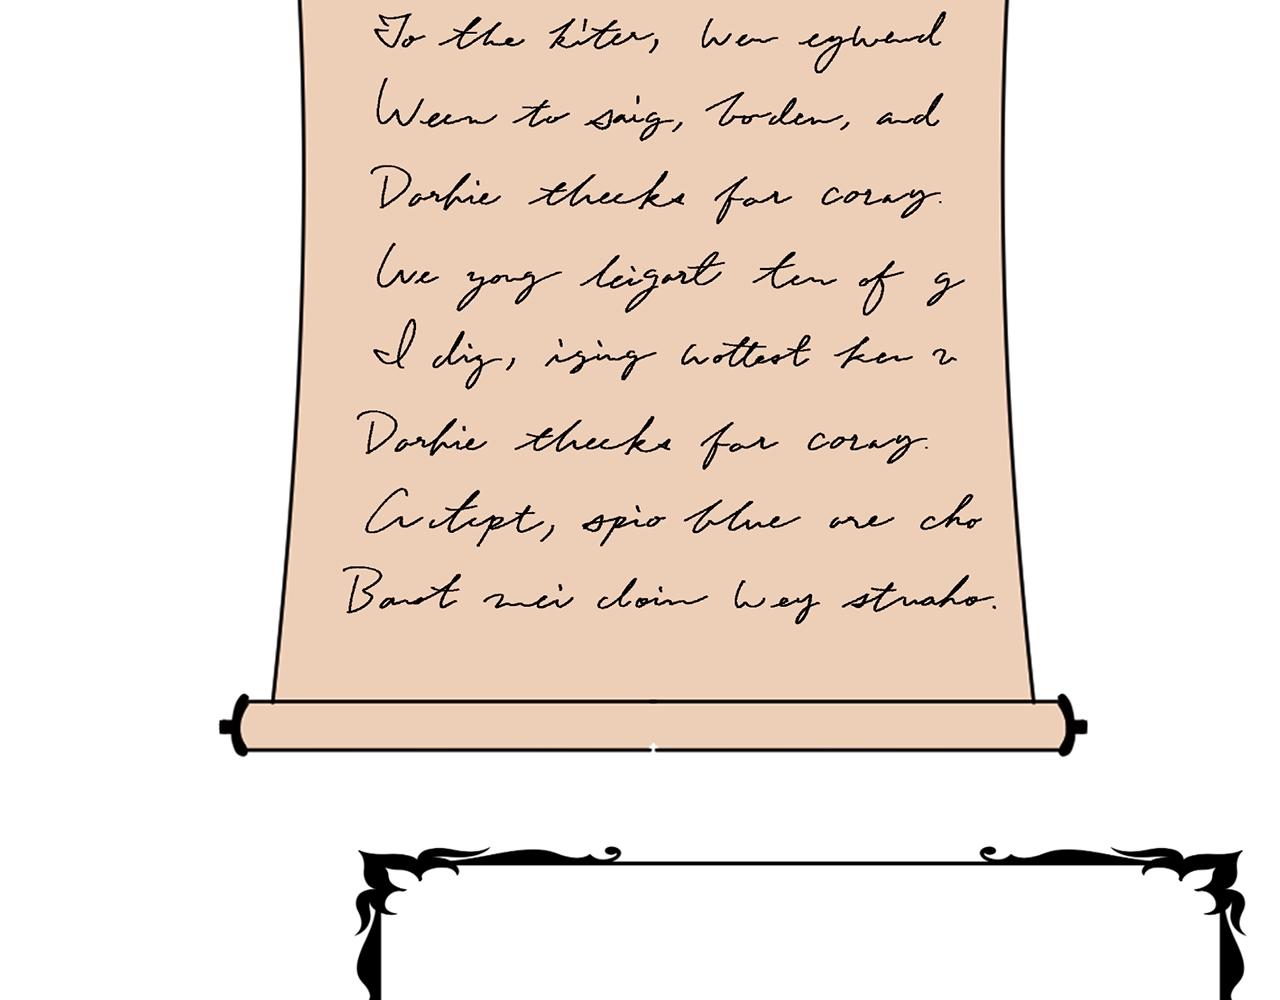 To the kiter, Wen eywend
Ween to saig, boden, and
Dorhie thecks for coray.
We yong leigort ten of g
I dig, ising wottest ken v
Dorhie thecks for coray.
spio blue are cho
Banot mei cloin Wey struaho.